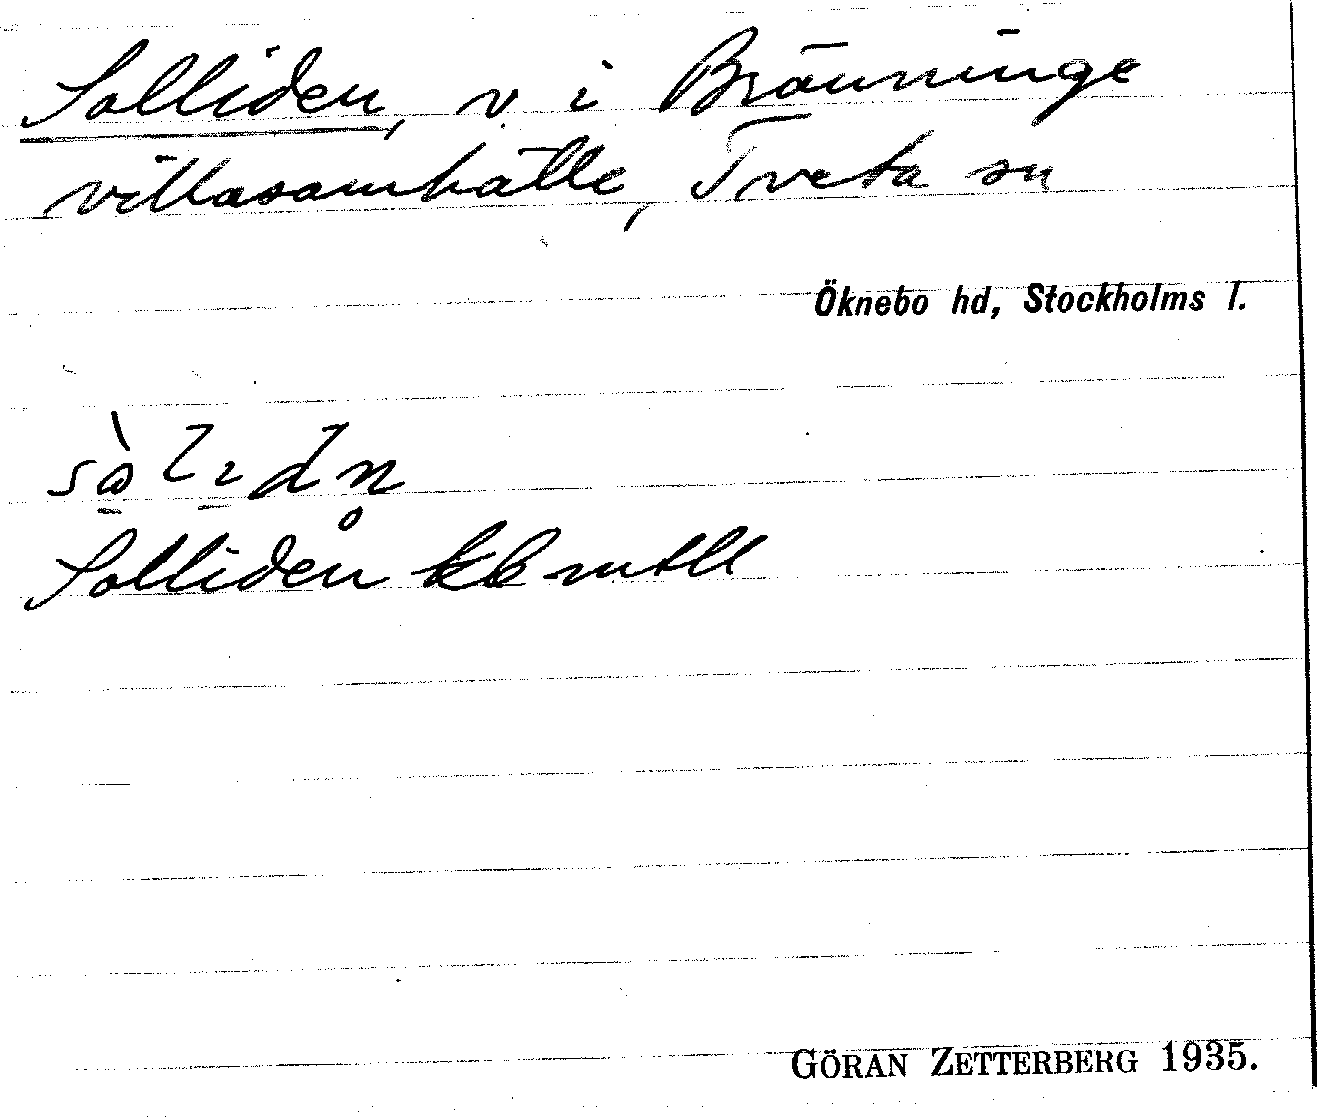 Solliden, v. i Bränninge
villasamhälle, Tveta sn
Öknebo hd, Stockholms l.
Solliden
GÖRAN ZETTERBERG 1935.